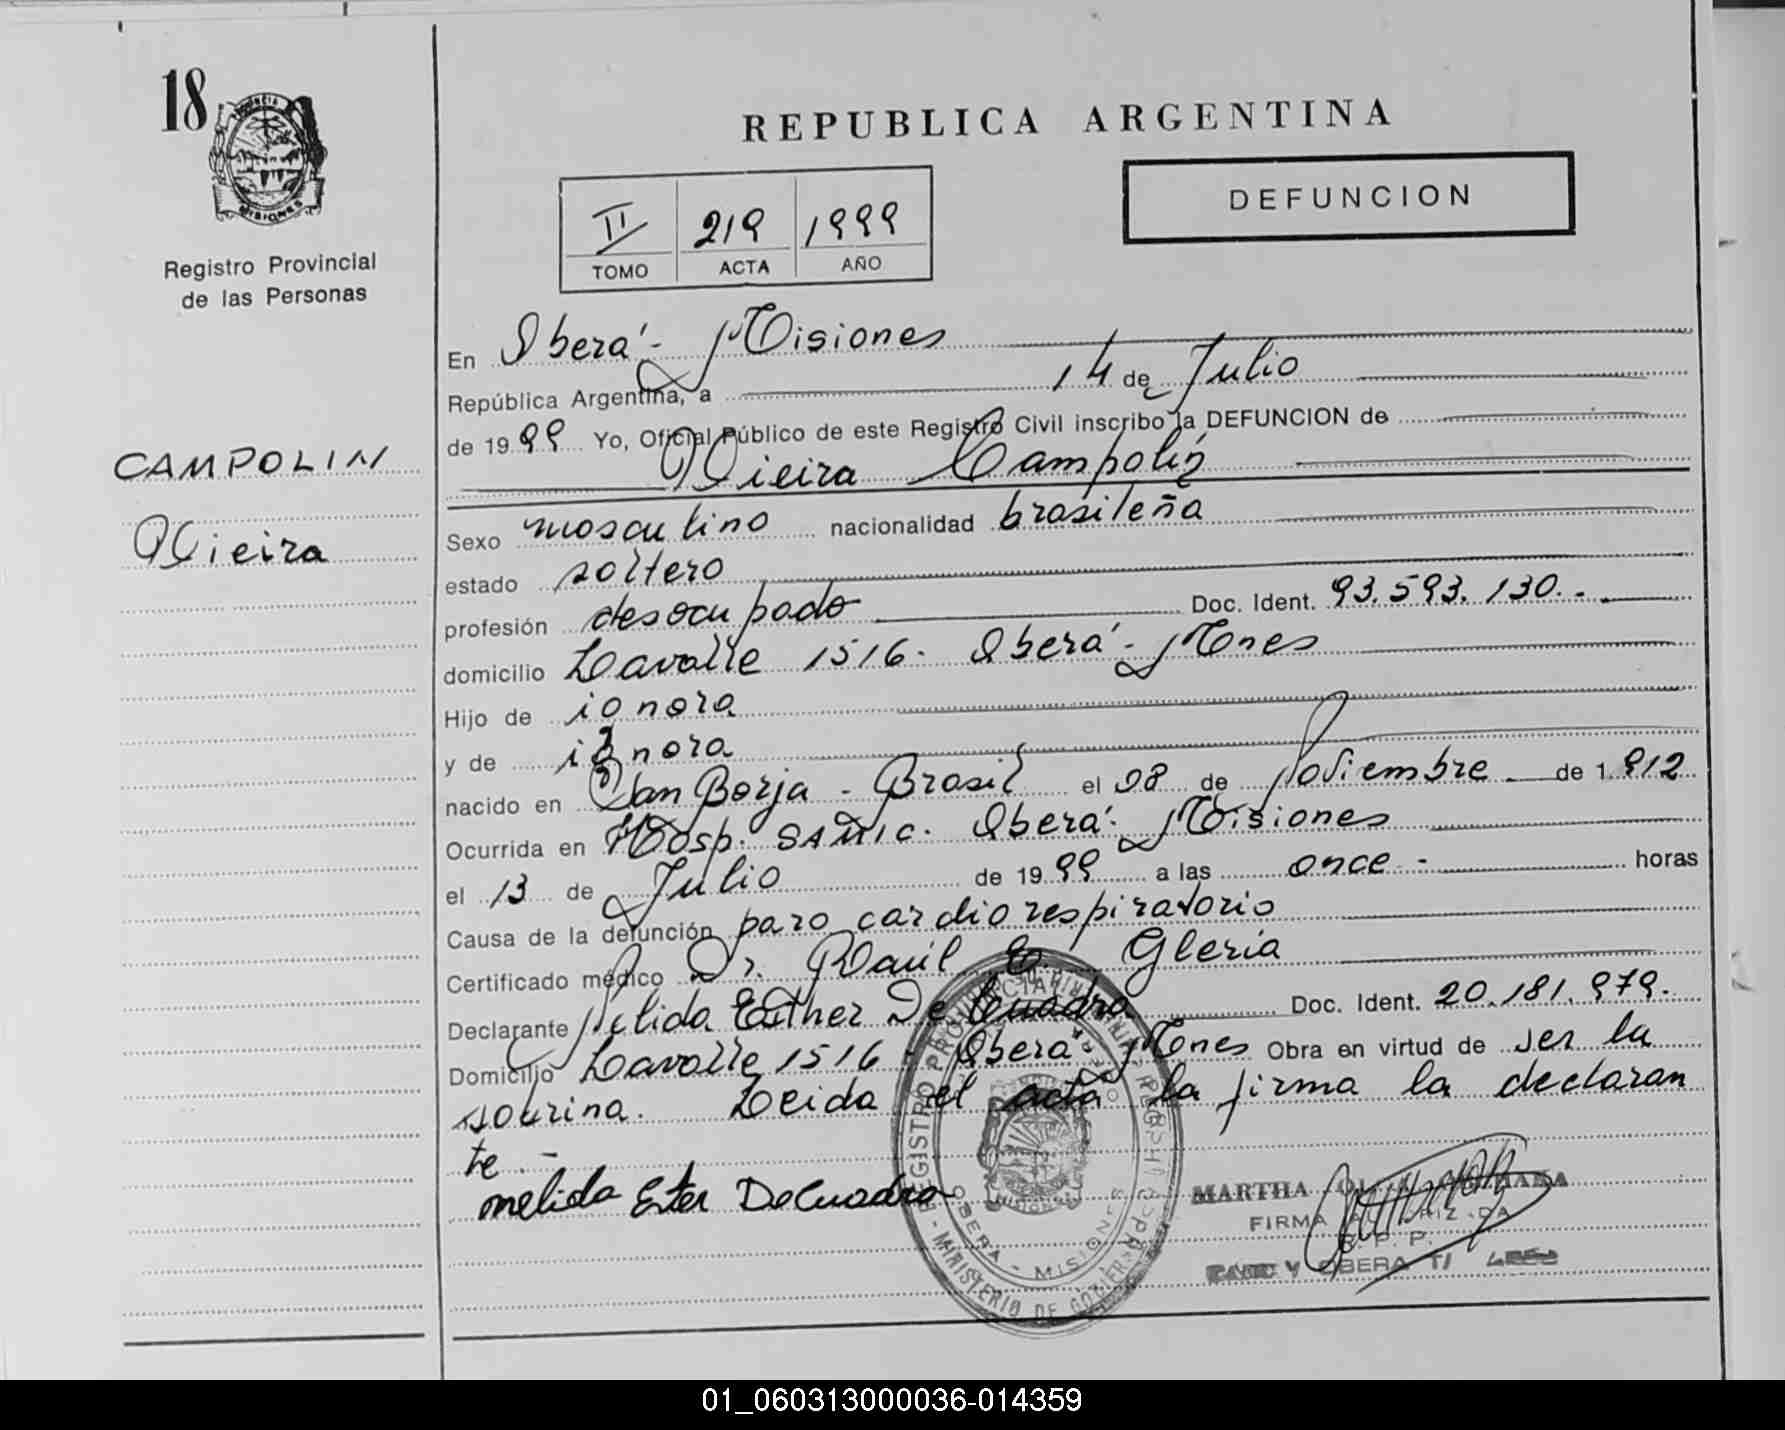 18
PROVINCIA
MISIONES
Registro Provincial
de las Personas
CAMPOLIN
Vieira
REPUBLICA ARGENTINA
DEFUNCION
II 219 1999
TOMO ACTA AÑO
En Oberá - Misiones
República Argentina, a 14 de Julio
de 1999 Yo, Oficial Público de este Registro Civil inscribo la DEFUNCION de
Vieira Campolin
Sexo masculino nacionalidad brasileña
estado soltero
profesión desocupado Doc. Ident. 93.593.130.-
domicilio Lavalle 1516. Oberá - Mnes
Hijo de ignora
y de ignora
nacido en San Borja - Brasil el 08 de Noviembre de 1.912
Ocurrida en Hosp. SAMIC. Oberá. Misiones
el 13 de Julio de 1999 a las once - horas
Causa de la defunción paro cardiorespiratorio
Certificado médico Dr. Raúl E. Gleria
Declarante Nelida Esther De Cuadra Doc. Ident. 20.181.979.
Domicilio Lavalle 1516 Oberá - Mnes Obra en virtud de ser la
sobrina. Leida el acta la firma la declaran
te.-
melida Ester DeCuadra
REGISTRO PROVINCIAL
OBERA - MISIONES
MINISTERIO DE GOBIERNO
MARTHA
FIRMA AUTORIZADA
R. P. P.
OBERA
01_060313000036-014359